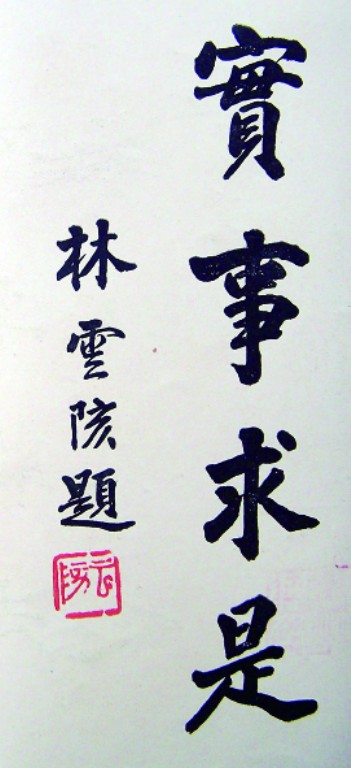 實事求是
林雲陔題